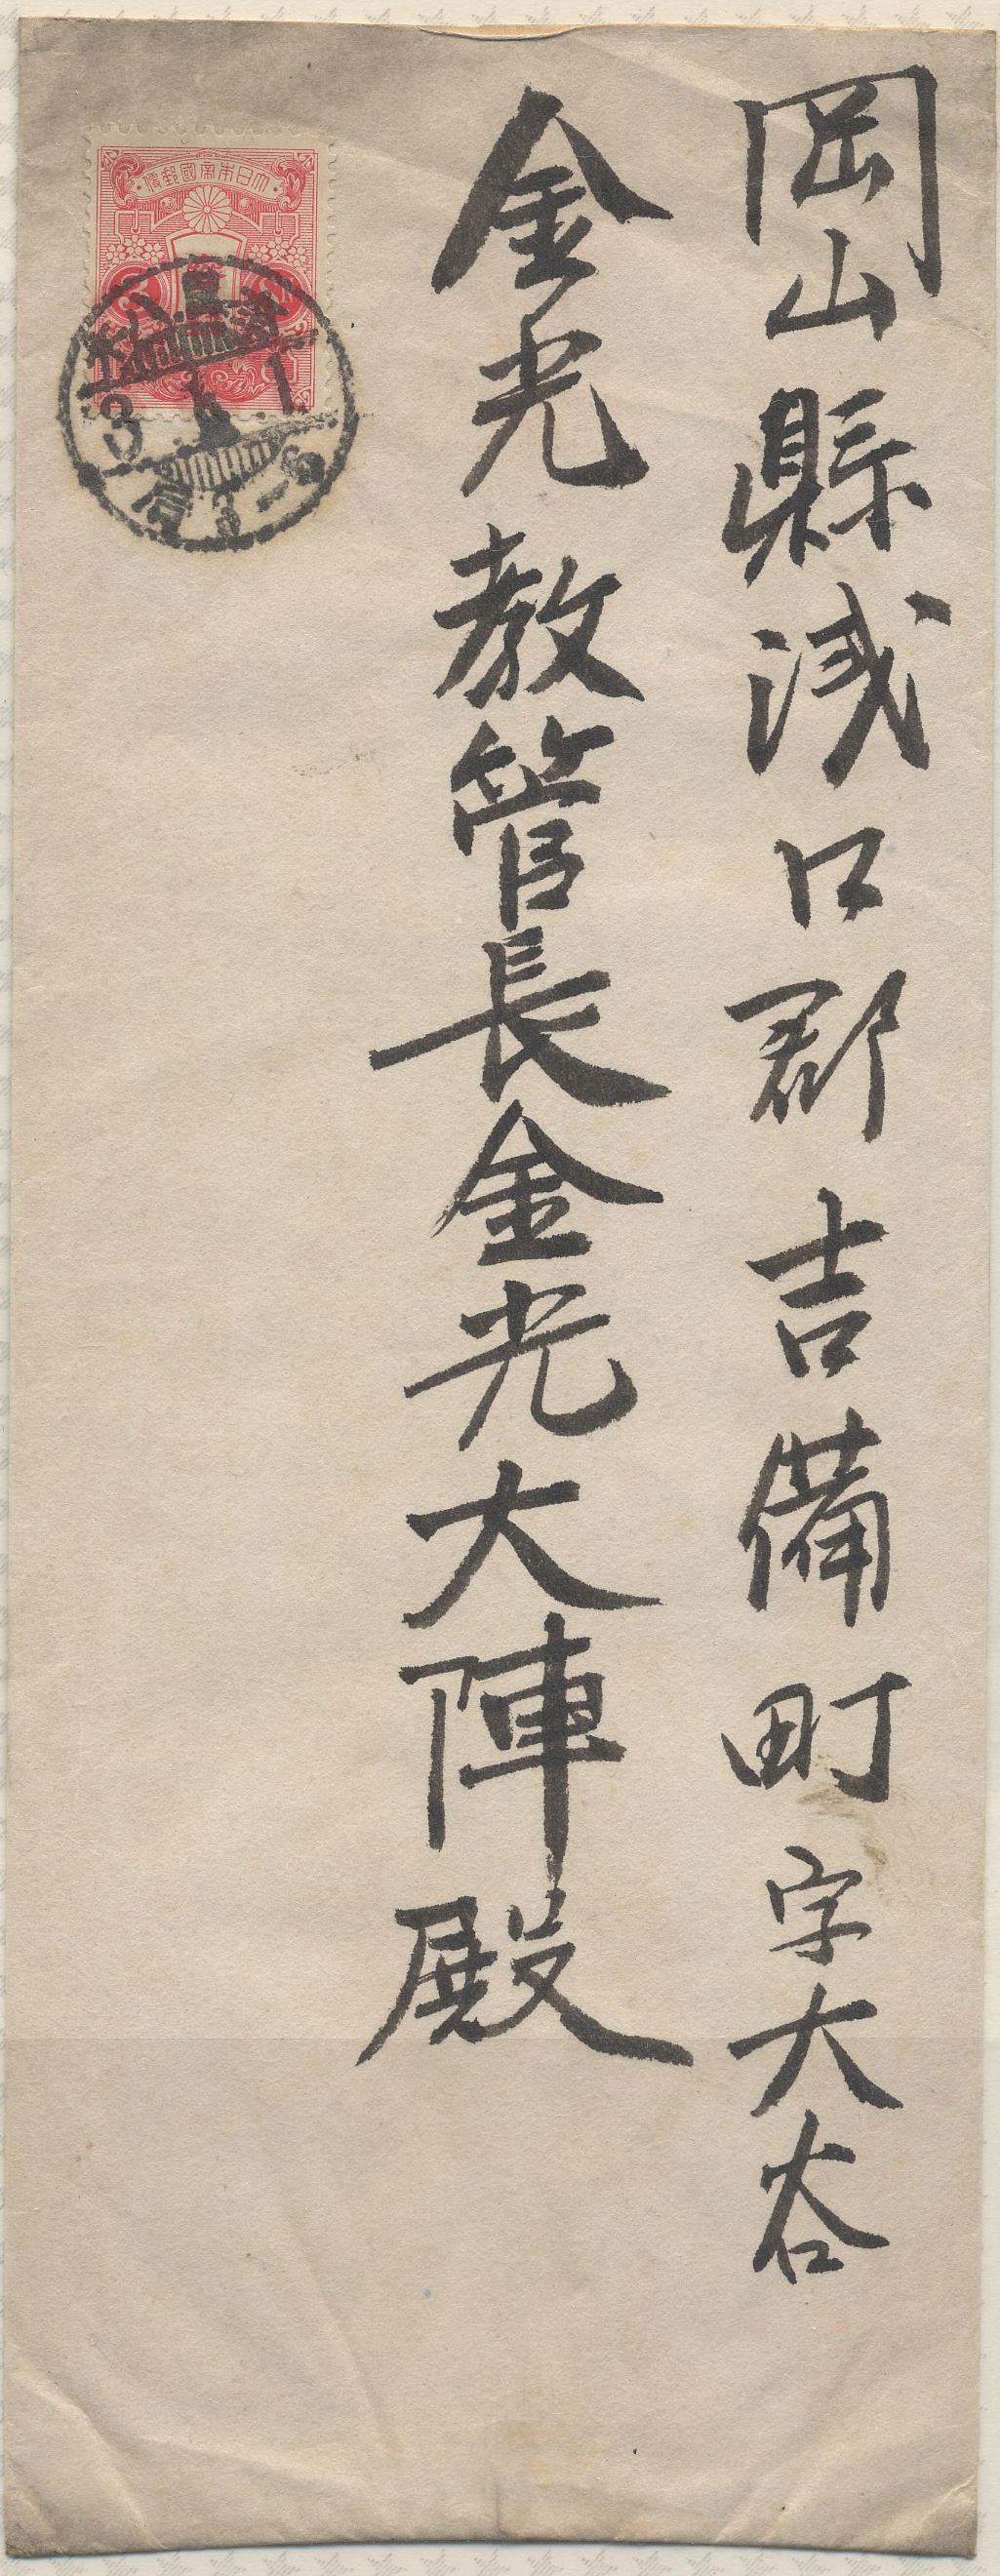 岡山縣浅口郡吉備町字大谷
金光教管長金光大陣殿
大日本帝國郵便
3. 1. 1